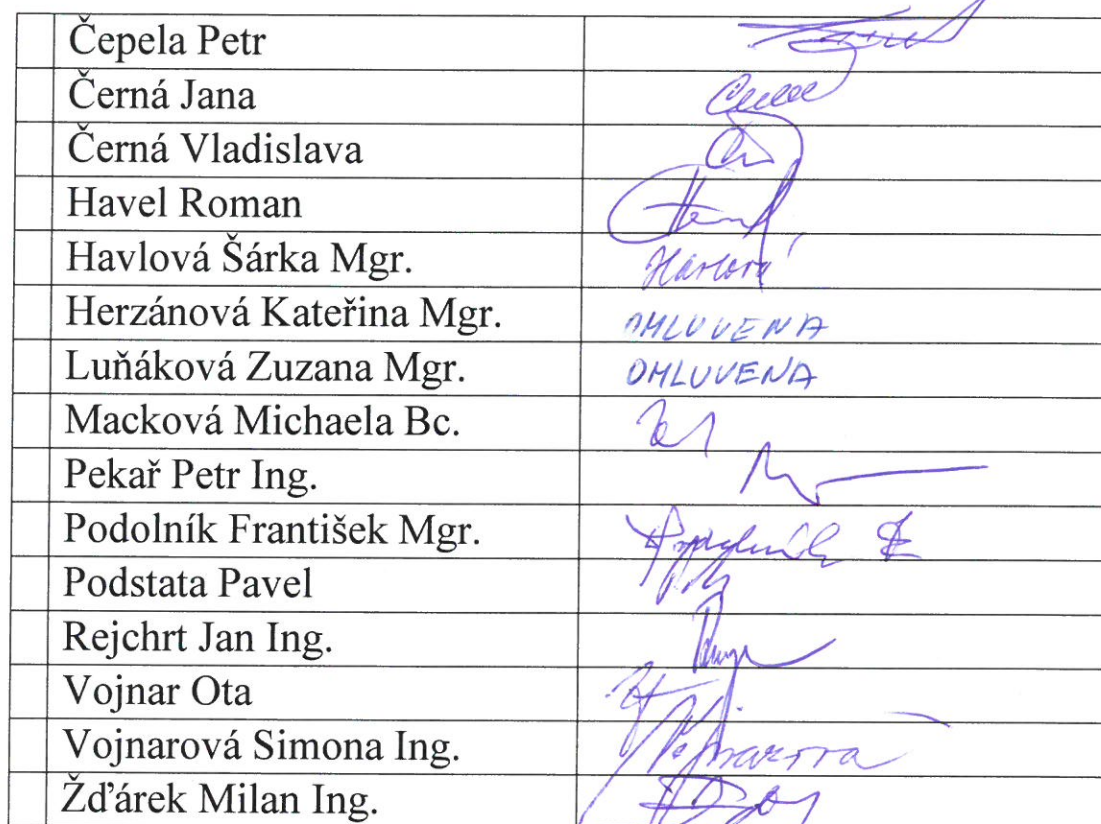 Čepela Petr
Černá Jana
Černá Vladislava
Havel Roman
Havlová Šárka Mgr. Havlová
Herzánová Kateřina Mgr. OMLUVENA
Luňáková Zuzana Mgr. OMLUVENA
Macková Michaela Bc.
Pekař Petr Ing.
Podolník František Mgr. Podolník F
Podstata Pavel
Rejchrt Jan Ing.
Vojnar Ota
Vojnarová Simona Ing. Vojnarová
Žďárek Milan Ing.